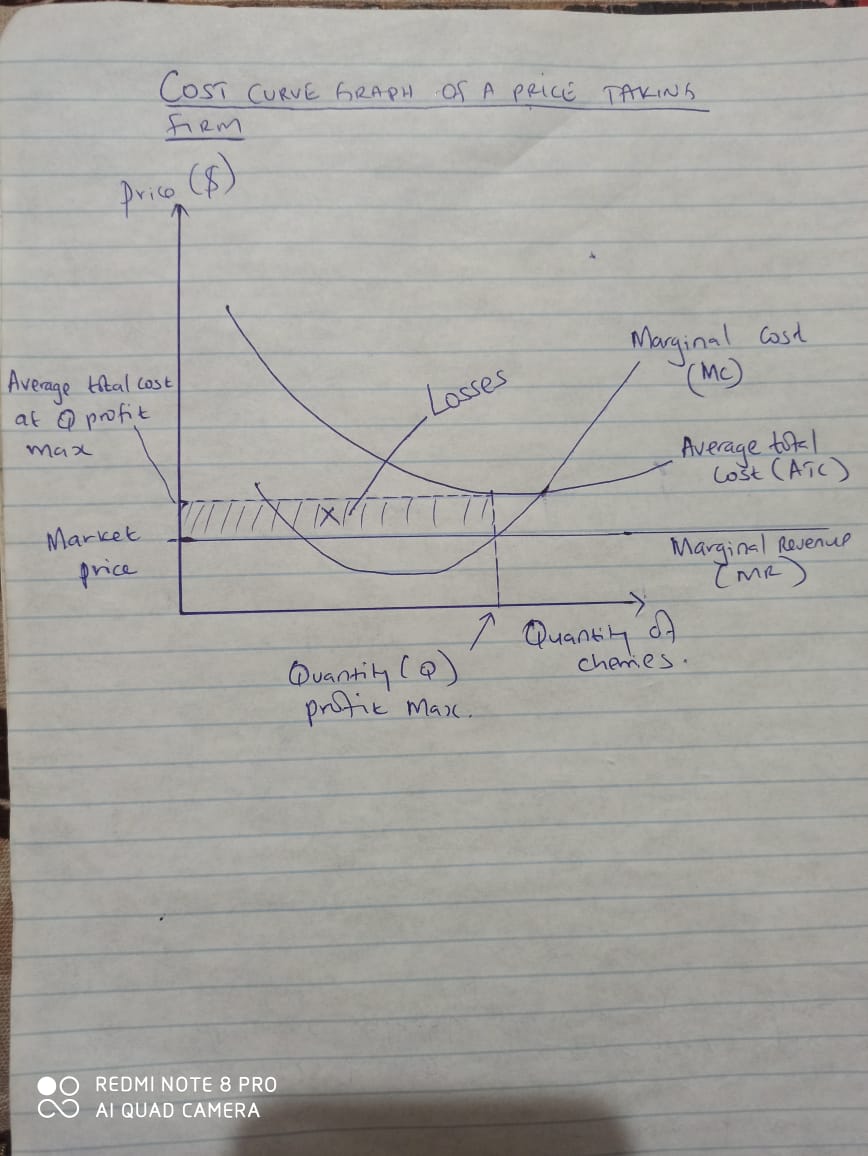 COST CURVE GRAPH OF A PRICE TAKING
FIRM
Price ($)
Marginal Cost
(MC)
Losses
Average total cost
at Q profit
max
Average total
Cost (ATC)
X
Market
price
Marginal Revenue
(MR)
Quantity of
cherries.
Quantity (Q)
profit Max.
REDMI NOTE 8 PRO
AI QUAD CAMERA